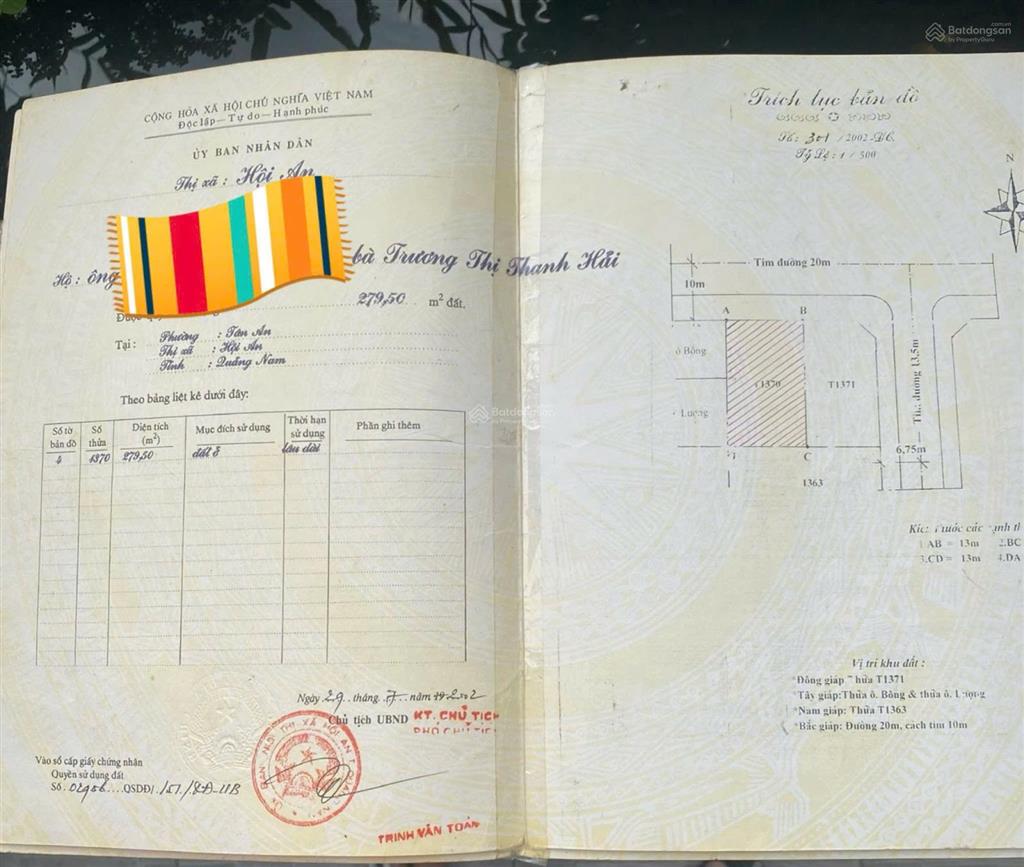 Batdongsan
.com.vn
by PropertyGuru
CỘNG HÒA XÃ HỘI CHỦ NGHĨA VIỆT NAM
Độc lập — Tự do — Hạnh phúc
ỦY BAN NHÂN DÂN
Thị xã : Hội An
Hộ : ông
bà Trương Thị Thanh Hải
279,50 m² đất.
Tại : Phường : Tân An
Thị xã : Hội An
Tỉnh : Quảng Nam
Theo bảng liệt kê dưới đây:
Số tờ bản đồ
Số thửa
Diện tích (m²)
Mục đích sử dụng
Thời hạn sử dụng
Phần ghi thêm
4 1370 279,50 đất ở lâu dài
Batdongsan
Ngày 29 tháng 7 năm 2002
Chủ tịch UBND KT. CHỦ TỊCH
PHÓ CHỦ TỊCH
Vào sổ cấp giấy chứng nhận
Quyền sử dụng đất
Số 02956 QSDĐ/ 151/QĐ-UB
TRỊNH VĂN TOẢN
Trích lục bản đồ
Sh: 301 /2002-ĐC
Tỷ Lệ : 1 / 500
N
Tim đường 20m
10m
A B
ô Bông
T1370 T1371
Lượng
đường 13,5m
6,75m
C
1363
thước các
1.AB = 13m 2.BC
3.CD = 13m 4.DA
Vị trí khu đất :
*Đông giáp Thửa T1371
*Tây giáp:Thửa ô. Bông & thửa ô. Lượng
*Nam giáp: Thửa T1363
*Bắc giáp: Đường 20m, cách tim 10m